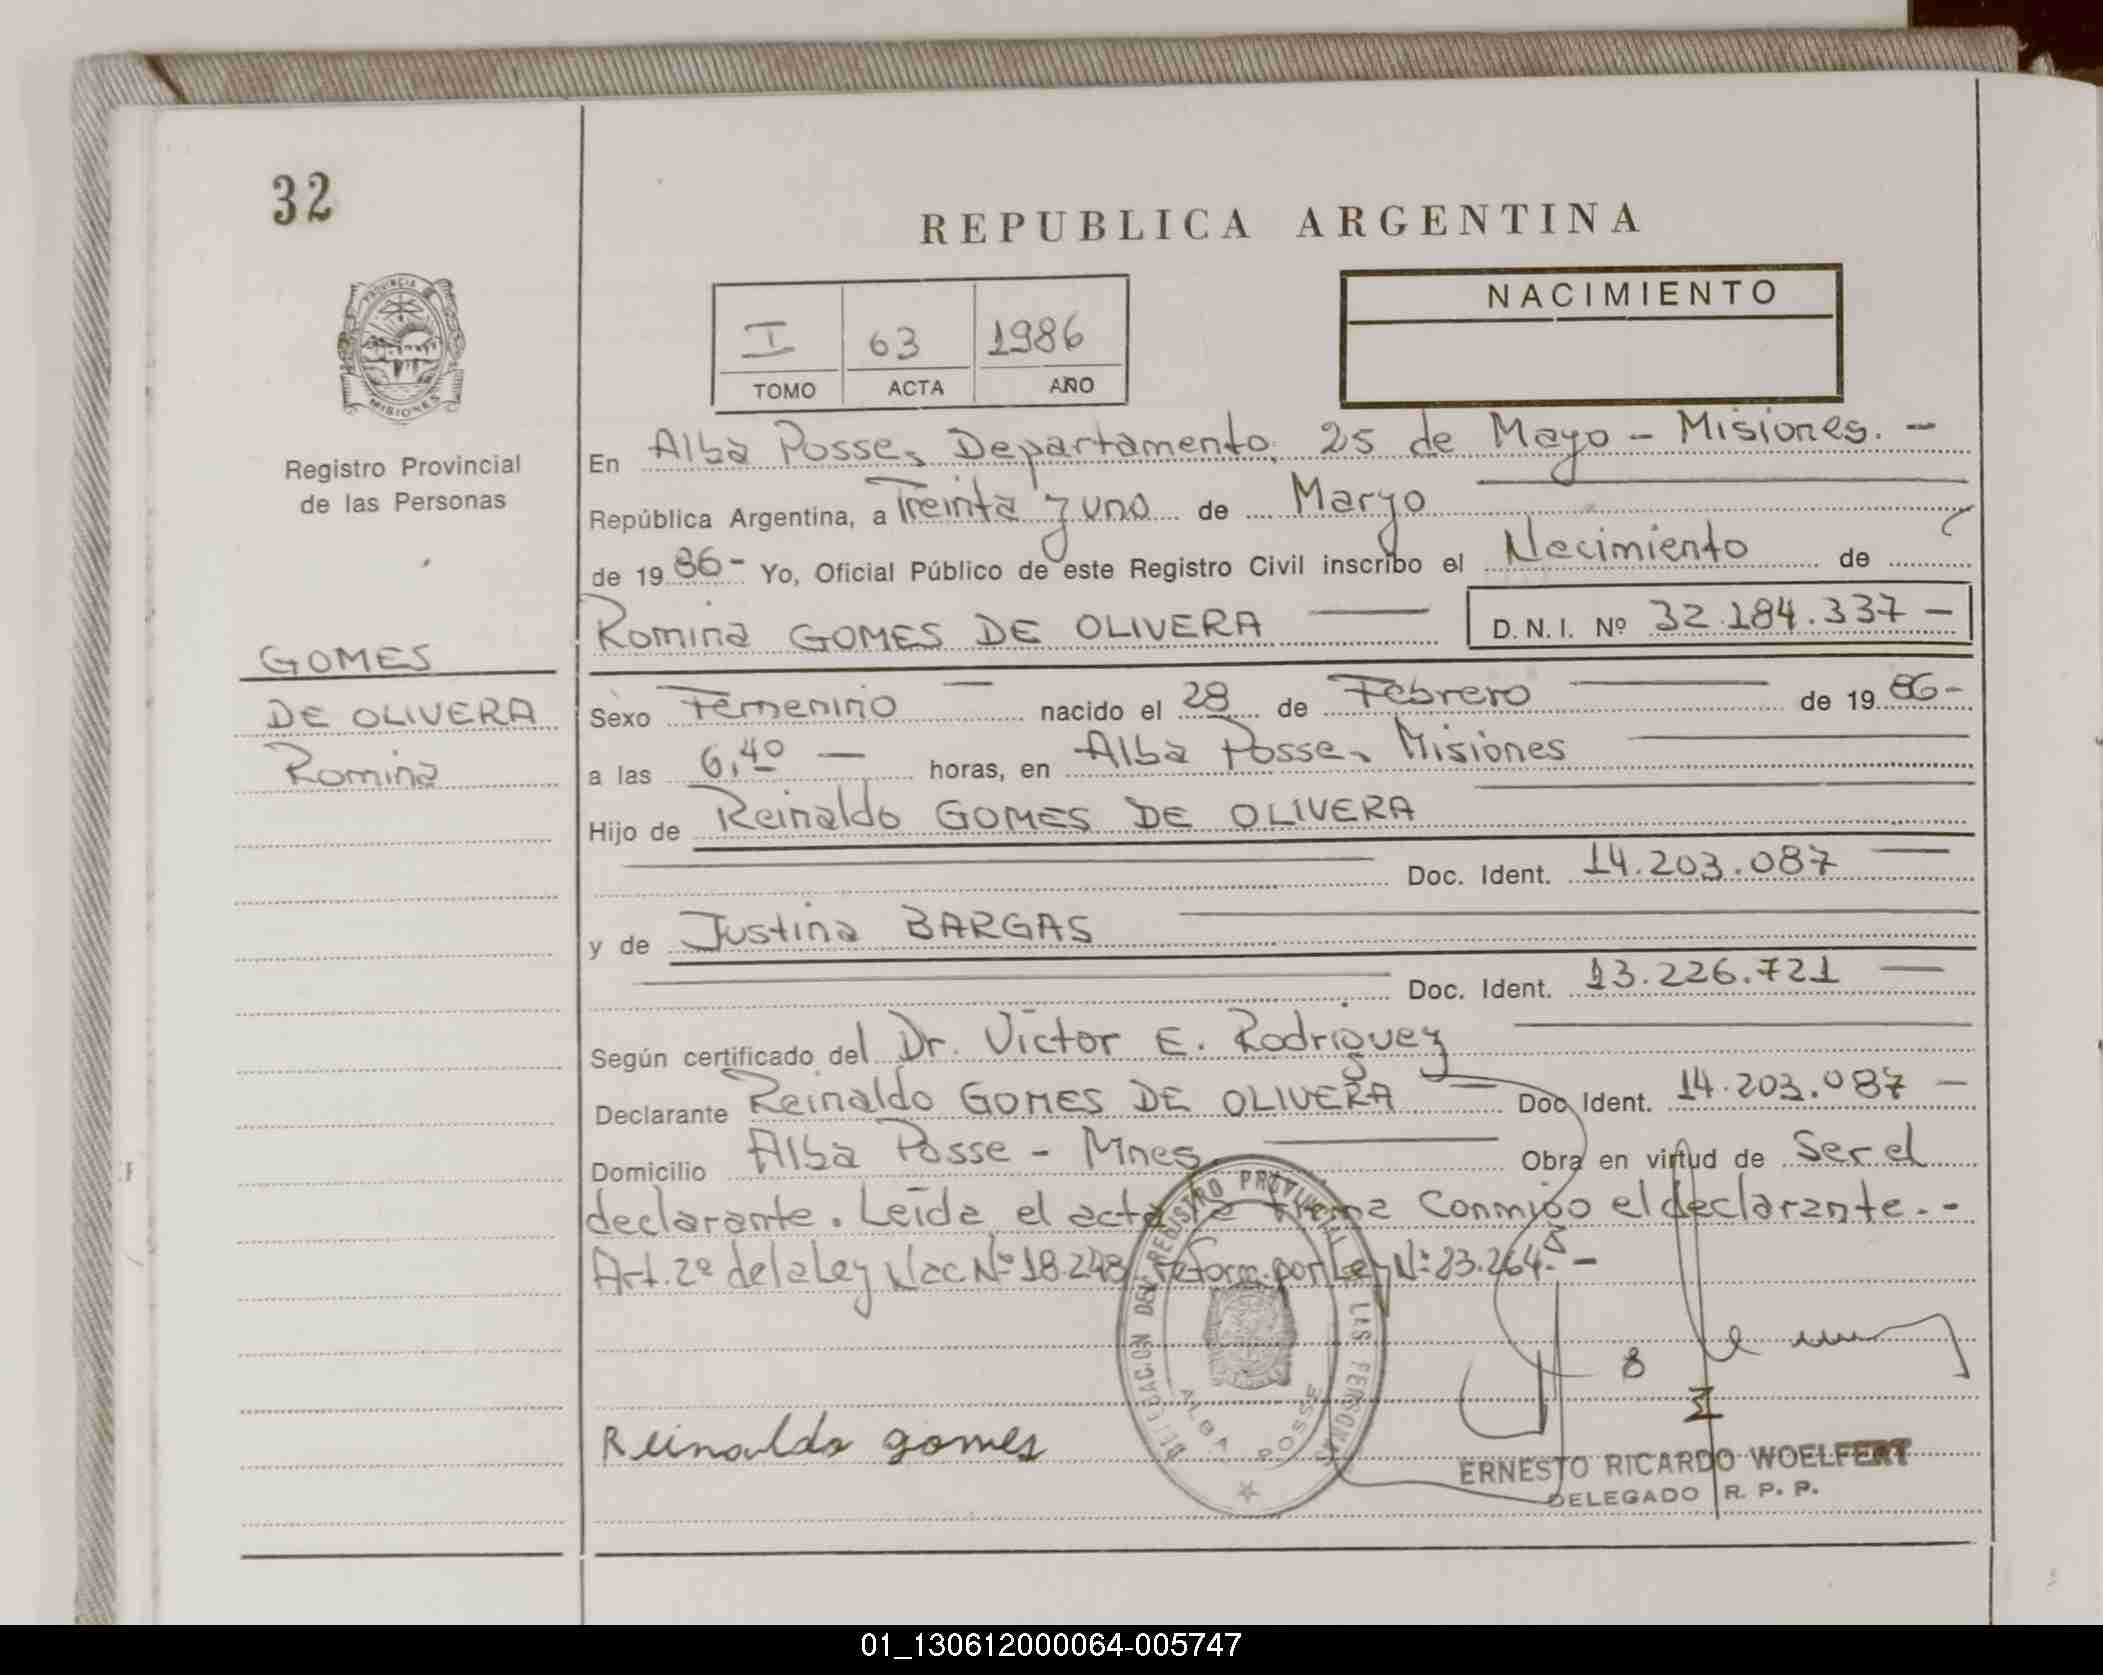 32
REPUBLICA ARGENTINA
PROVINCIA
MISIONES
NACIMIENTO
I 63 1986
TOMO ACTA AÑO
Registro Provincial
de las Personas
GOMES
DE OLIVERA
Romina
En Alba Posse, Departamento, 25 de Mayo - Misiones. -
República Argentina, a Treinta y uno de Marzo
de 1986- Yo, Oficial Público de este Registro Civil inscribo el Nacimiento de
Romina GOMES DE OLIVERA D.N.I. Nº 32.184.337 -
Sexo Femenino nacido el 28 de Febrero de 1986-
a las 6,40 - horas, en Alba Posse, Misiones
Hijo de Reinaldo GOMES DE OLIVERA
Doc. Ident. 14.203.087
y de Justina BARGAS
Doc. Ident. 13.226.721
Según certificado del Dr. Victor E. Rodriguez
Declarante Reinaldo GOMES DE OLIVERA Doc. Ident. 14.203.087 -
Domicilio Alba Posse - Mnes. Obra en virtud de Ser el
declarante. Leída el acta la firma conmigo el declarante.-
Art. 2º de la Ley Nac. Nº 18.248, reform. por Ley Nº 23.264. -
DELEGACION DEL REGISTRO PROVINCIAL DE LAS PERSONAS
ALBA POSSE
Reinaldo gomes
ERNESTO RICARDO WOELFERT
DELEGADO R. P. P.
01_130612000064-005747